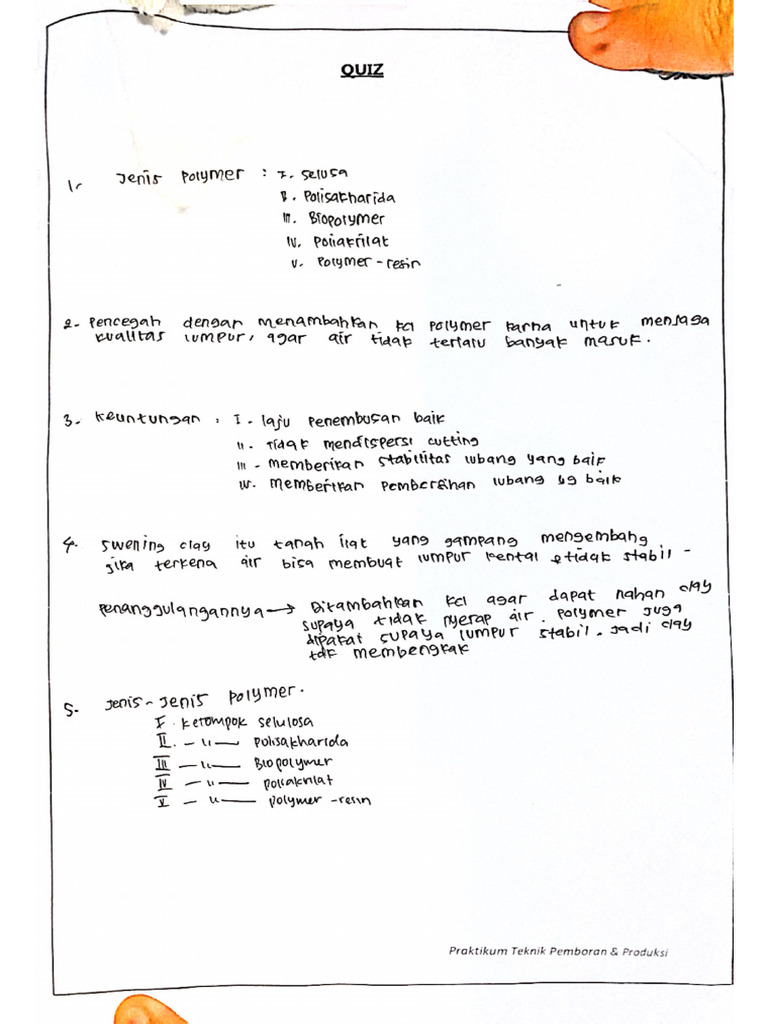 QUIZ
1. Jenis Polymer : I. Selusa
II. Polisakharida
III. Biopolymer
IV. Poliakrilat
V. Polymer-resin
2. Pencegah dengan menambahkan kcl polymer karna untuk menjaga
kualitas lumpur, agar air tidak terlalu banyak masuk.
3. Keuntungan : I. laju penembusan baik
II. Tidak mendispersi cutting
III. memberikan stabilitas lubang yang baik
IV. memberikan pembersihan lubang yg baik
4. swening clay itu tanah liat yang gampang mengembang
jika terkena air bisa membuat lumpur kental & tidak stabil -
penanggulangannya → Ditambahkan kcl agar dapat nahan clay
supaya tidak nyerap air. polymer juga
dipakai supaya lumpur stabil. Jadi clay
tdk membengkak
5. Jenis-Jenis polymer.
I. kelompok selulosa
II. - 〃 — polisakharida
III - 〃 — Biopolymer
IV - 〃 — poliakrilat
V - 〃 — polymer-resin
Praktikum Teknik Pemboran & Produksi